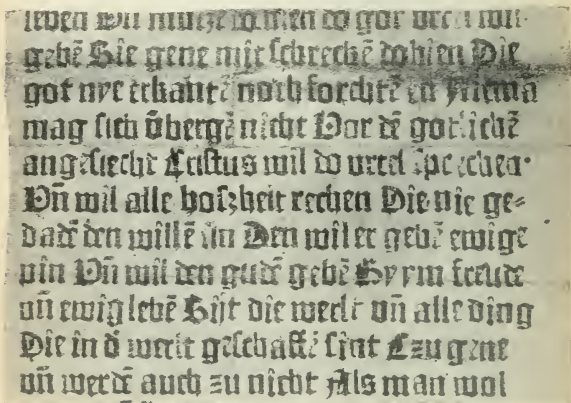 leben Vn̄ do got urteil wil
gebē Sie gene mit schreckē dohien Die
got nye erkantē noch forchtē en Niema
mag sich v̄bergē nicht Vor dē gotlichē
angesiecht Cristus wil do urtel sprechen·
Vn̄ wil alle boszheit rechen Die nie ge⸗
dadē den willē sin Den wil er gebē ewige
pin Vn̄ wil den gudē gebē By ym freude
vn̄ ewig lebē Sijt die werlt vn̄ alle ding
Die in d̄ werlt geschaffē sint Czu gene
vn̄ werdē auch zu nicht Als man wol